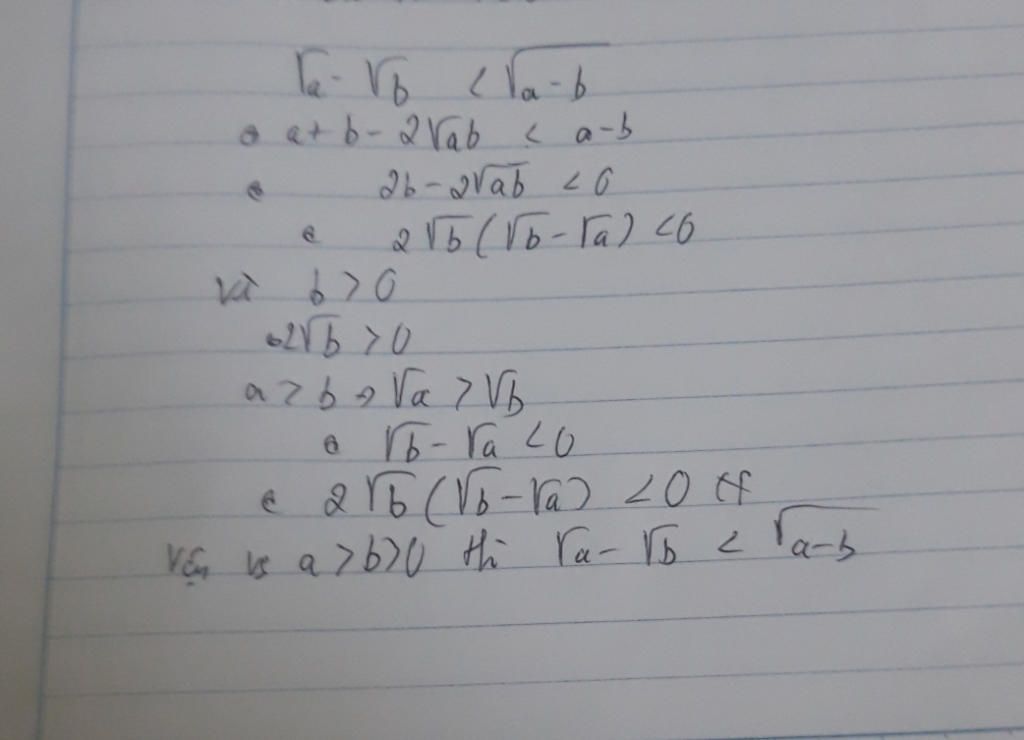 √a - √b < √(a-b)
⇔ a + b - 2√ab < a-b
⇔ 2b - 2√ab < 0
⇔ 2√b (√b - √a) < 0
Vì b > 0
⇔ 2√b > 0
a > b → √a > √b
⇔ √b - √a < 0
⇔ 2√b (√b - √a) < 0
Vậy vs a > b > 0 thì √a - √b < √(a-b)